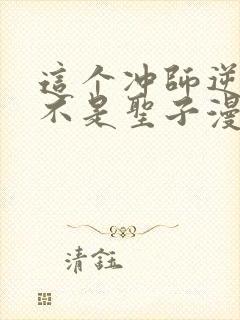 這个冲師逆
不是聖子漫
清鈺